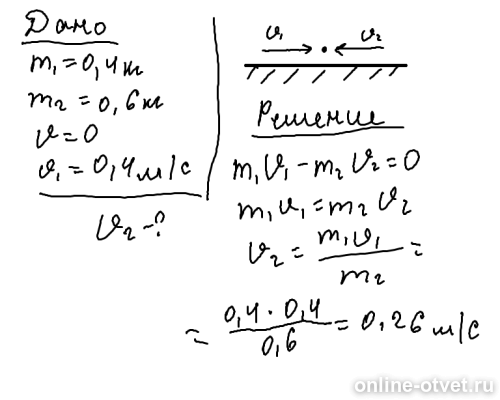 Дано
m₁=0,4 кг
m₂=0,6 кг
v=0
v₁=0,4 м/с
v₂-?
v₁ v₂
Решение
m₁v₁-m₂v₂=0
m₁v₁=m₂v₂
v₂=m₁v₁/m₂=
=0,4·0,4/0,6=0,26 м/с
online-otvet.ru